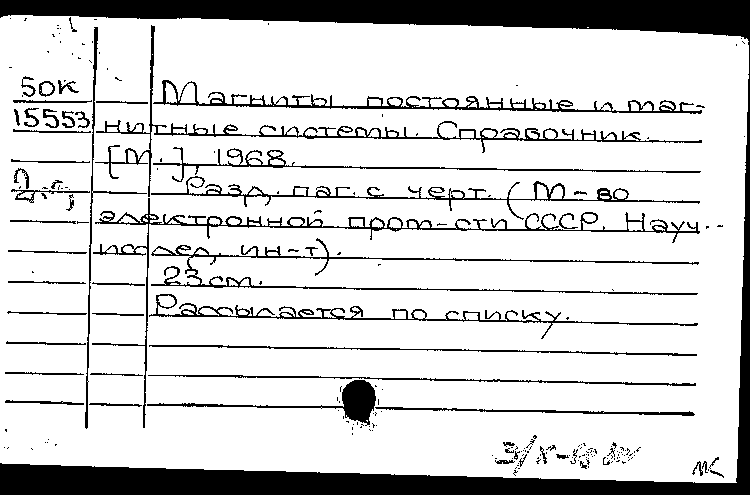 50К
Магниты постоянные и маг-
15553 нитные системы. Справочник.
[М.], 1968.
Разд. паг. с черт. (М-во
электронной пром-сти СССР. Науч.-
исслед. ин-т).
23 см.
Рассылается по списку.
МК